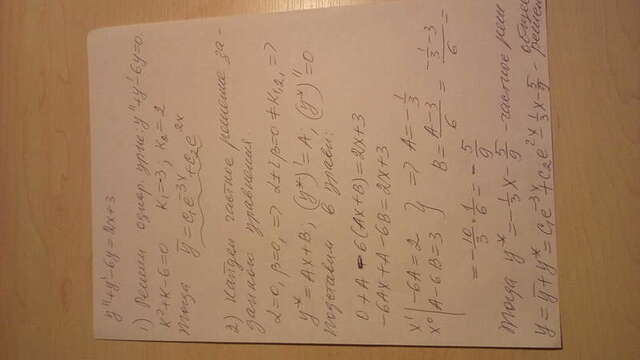 y'' + y' - 6y = 2x + 3
1) Решим однор. урн-е: y'' + y' - 6y = 0.
k² + k - 6 = 0 k₁ = -3; k₂ = 2
Тогда ȳ = c₁e^{-3x} + c₂e^{2x}
2) Найдем частное решение за-
данного уравнения.
α = 0, β = 0, => α ± iβ = 0 ≠ k₁,₂, =>
y* = Ax + B; (y*)' = A; (y*)'' = 0
Подставим в уравн:
0 + A - 6(Ax + B) = 2x + 3
-6Ax + A - 6B = 2x + 3
x¹ | -6A = 2
x⁰ | A - 6B = 3 } => A = -1/3
B = (A - 3)/6 = (-1/3 - 3)/6 =
= -10/3 · 1/6 = -5/9
Тогда y* = -1/3 x - 5/9 - частное реш
y = ȳ + y* = c₁e^{-3x} + c₂e^{2x} - 1/3 x - 5/9 - общее решени